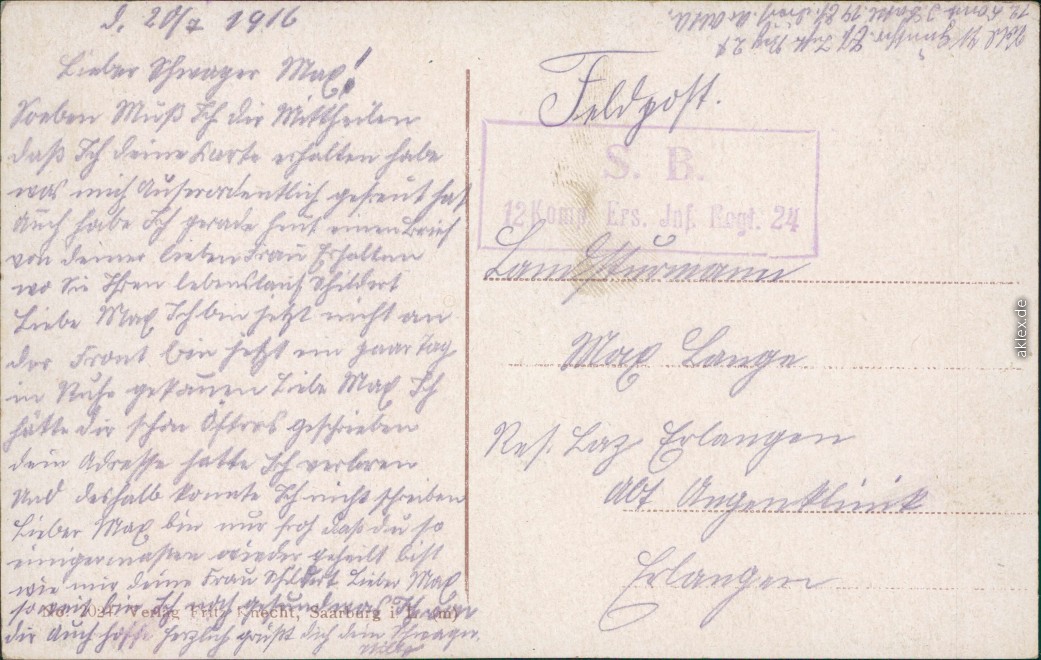 d. 20/7 1916
Lieber Schwager Max!
Soeben Muß Ich dir Mittheilen
daß Ich deine Karte erhalten habe
was mich Auserordentlich gefreut hat
Auch habe Ich gerade heut einen Brief
von deiner lieben Frau Erhalten
wo Sie Ihren lebenslauf Schildert
Liebe Max Ich bin jetzt nicht an
der Front bin jetzt ein paar Tag
in Ruhe gekommen Liebe Max Ich
hätte dir schon Öfters geschrieben
dein Adresse hatte Ich verloren
Und deshalb konnte Ich nicht schreiben
Lieber Max bin nur froh daß du so
einigermasen wieder geheilt bist
wie mir deine Frau Schildert Lieber Max
soweit bin Ich noch gesund was Ich von
dir Auch hoffe Herzlich grüßt dich dein Schwager
Willy
No. Verlag Fritz Knecht, Saarburg i.
Feldpost.
S. B.
12 Komp. Ers. Inf. Regt. 24
Landsturmann
Max Lange
Res. Laz. Erlangen
Abt Augenklinik
Erlangen
aklex.de